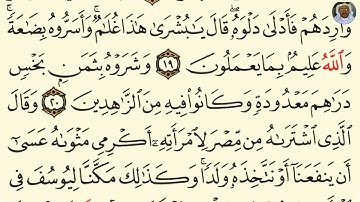 وَارِدَهُمْ فَأَدْلَىٰ دَلْوَهُۥ ۖ قَالَ يَـٰبُشْرَىٰ هَـٰذَا غُلَـٰمٌ ۚ وَأَسَرُّوهُ بِضَـٰعَةً ۚ
وَٱللَّهُ عَلِيمٌۢ بِمَا يَعْمَلُونَ ١٩ وَشَرَوْهُ بِثَمَنٍۭ بَخْسٍ
دَرَٰهِمَ مَعْدُودَةٍ وَكَانُوا۟ فِيهِ مِنَ ٱلزَّٰهِدِينَ ٢٠ وَقَالَ
ٱلَّذِى ٱشْتَرَىٰهُ مِن مِّصْرَ لِٱمْرَأَتِهِۦٓ أَكْرِمِى مَثْوَىٰهُ عَسَىٰٓ
أَن يَنفَعَنَآ أَوْ نَتَّخِذَهُۥ وَلَدًا ۚ وَكَذَٰلِكَ مَكَّنَّا لِيُوسُفَ فِى